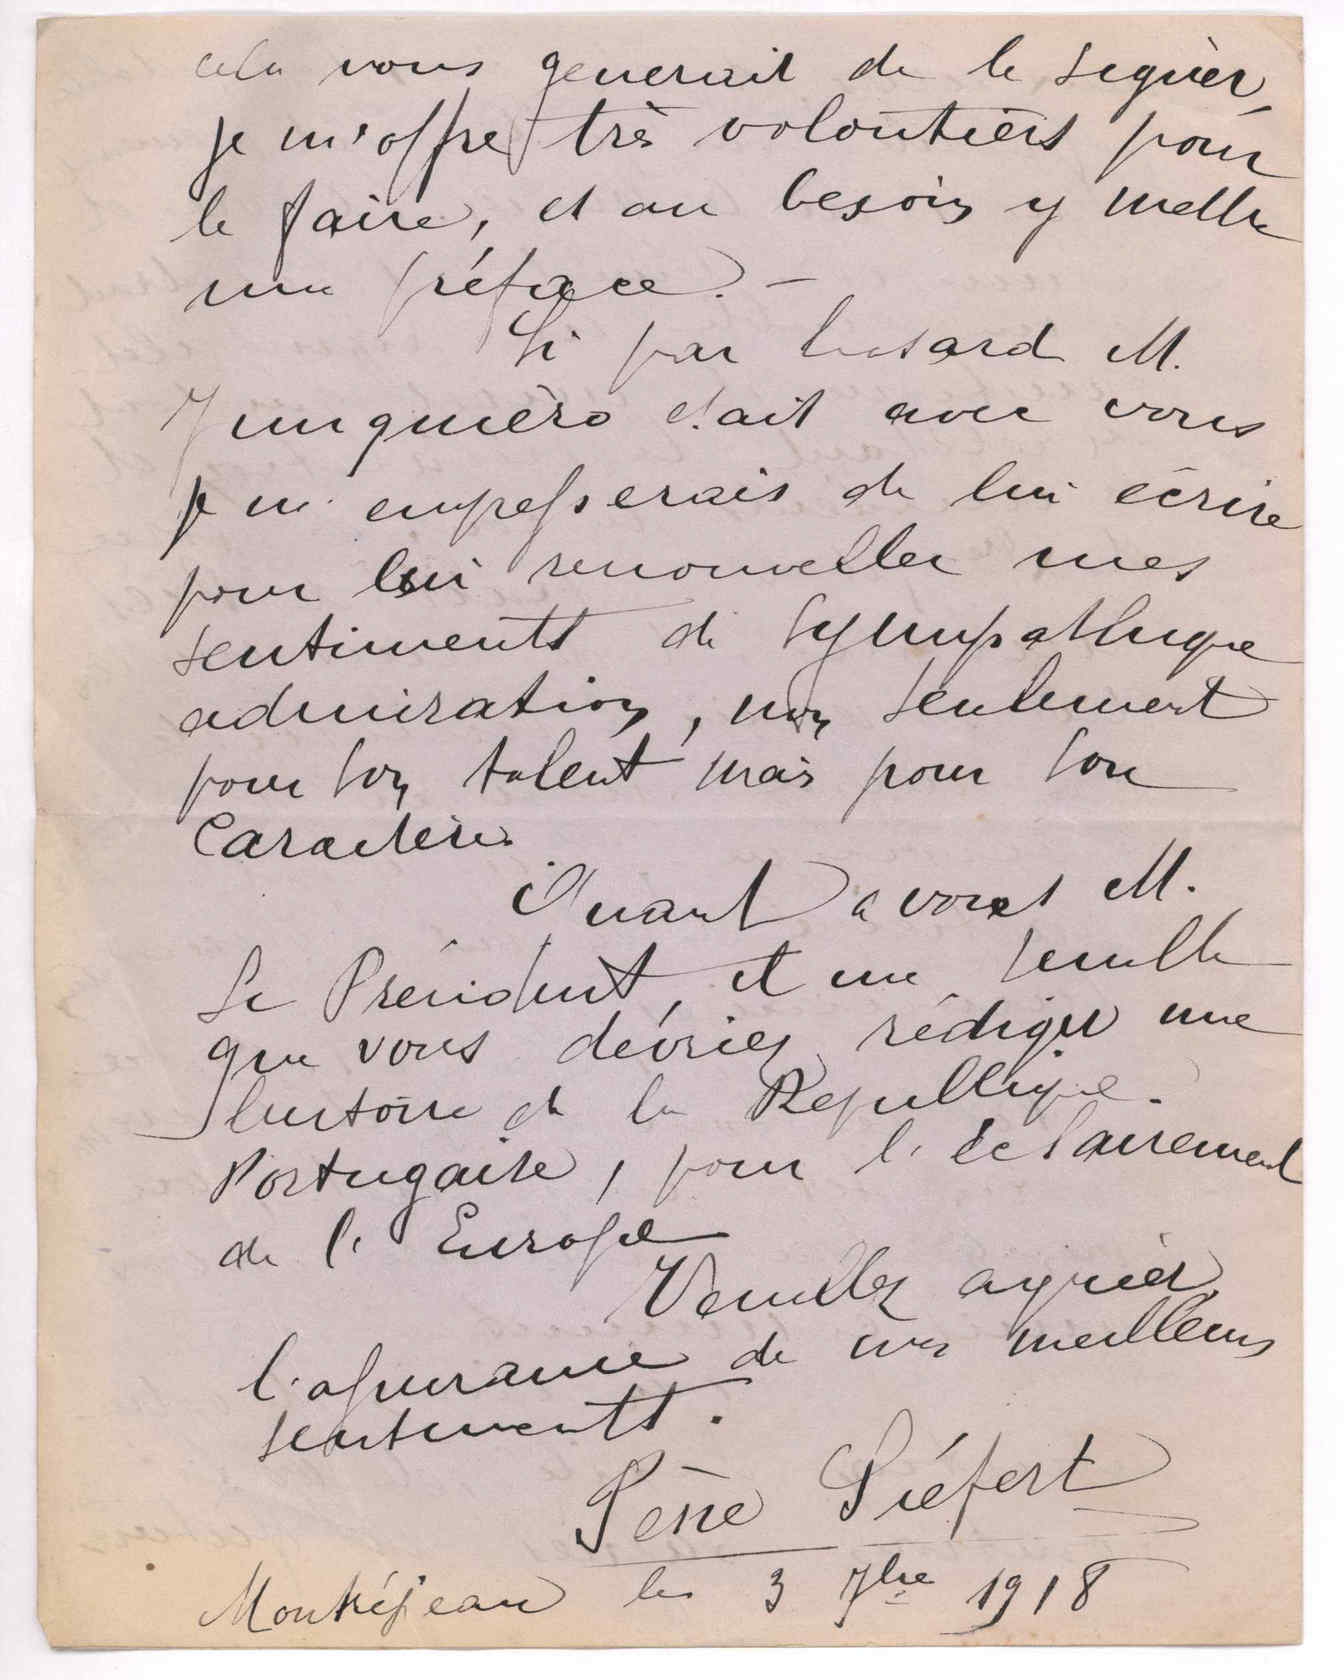 cela vous generait de le signèr,
je m'offre très volontièrs pour
le faire, et au besoin y mettre
une préface. -
Si par hasard M.
Junquièro était avec vous
je m'empesserais de lui écrire
pour lui renouveller mes
sentiments de sympathique
admiration, non seulement
pour son talent mais pour son
Caractère.
Quant a vous M.
Le Président, il me semble
que vous dévriez rédiger une
histoire de la Republique.
Portugaise, pour l'éclairement
de l'Europe
Veuillez agréer,
l'assurance de mes meilleurs
sentiments.
Père Piéfort
Montréjeau le 3 7bre 1918